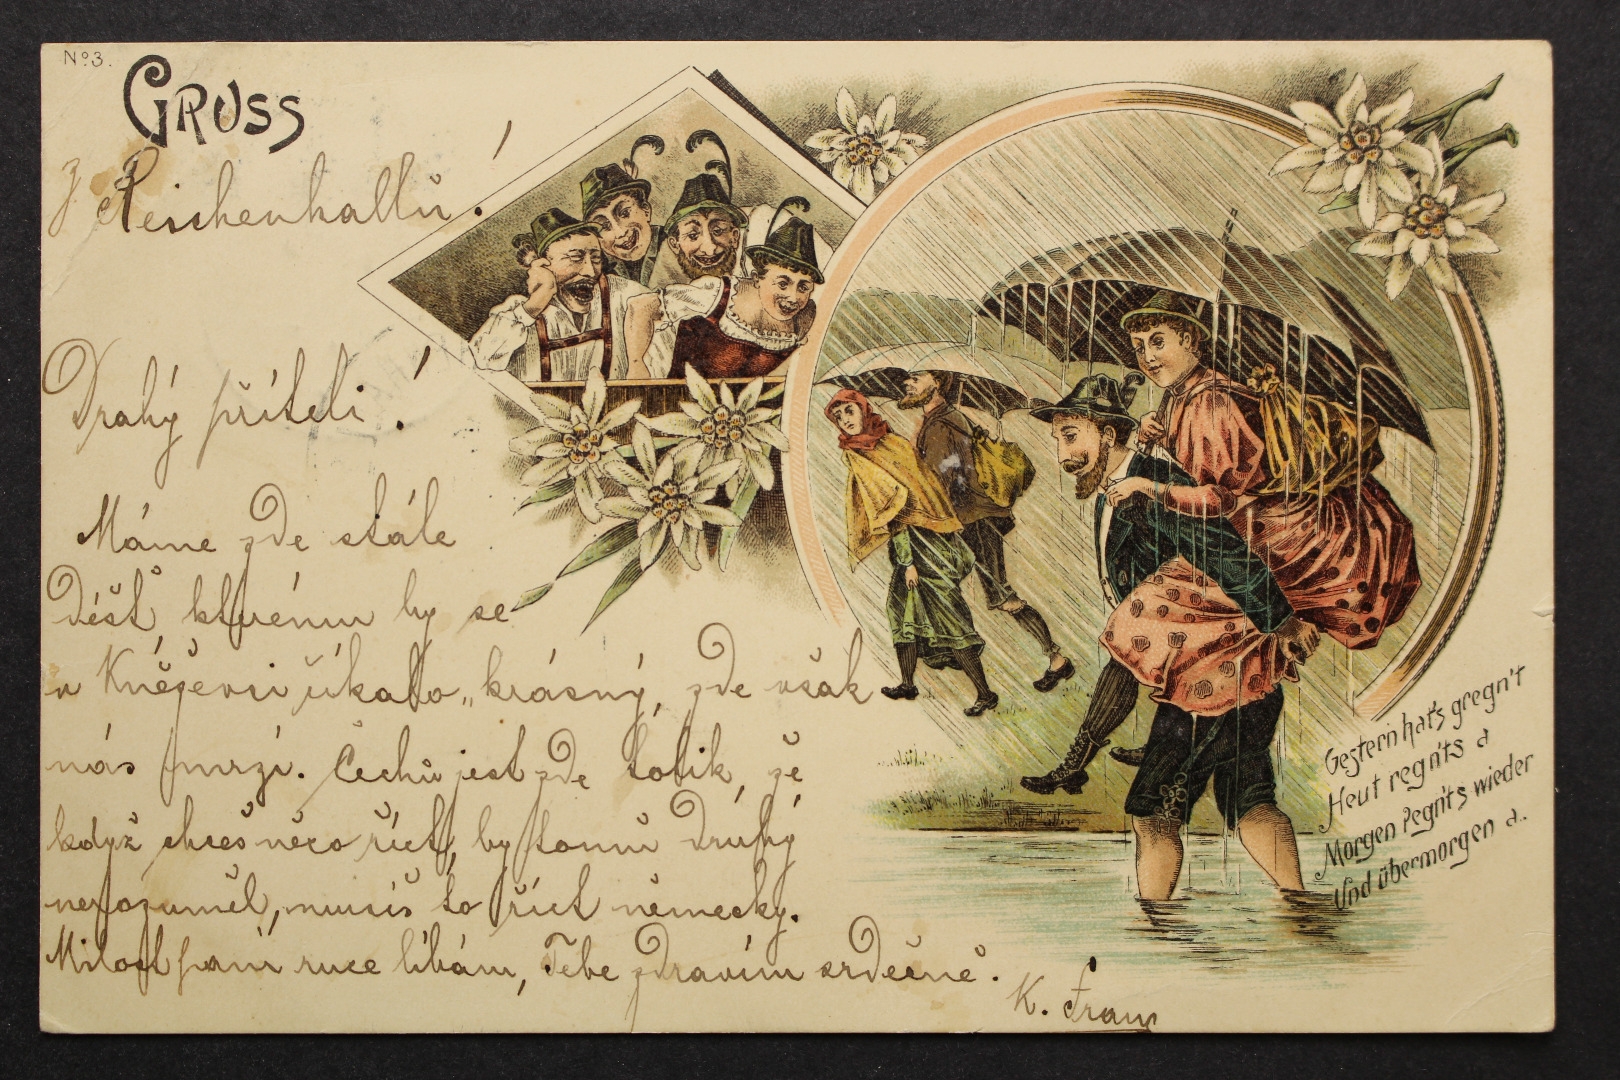 Nº 3.
GRUSS
z Reichenhallu!
Drahý příteli!
Máme zde stále
déšť, kterému by se
v Kněževsi říkalo „krásný, zde však
nás mrzí. Čechů jest zde tolik, že
když chceš něco říct, by tomu druhý
nerozuměl, musíš to říct německy.
Milost paní ruce líbám, Tebe zdravím srdečně.
K. Franz
Gestern hat's gregn't
Heut regn'ts a
Morgen regn'ts wieder
Und übermorgen a.